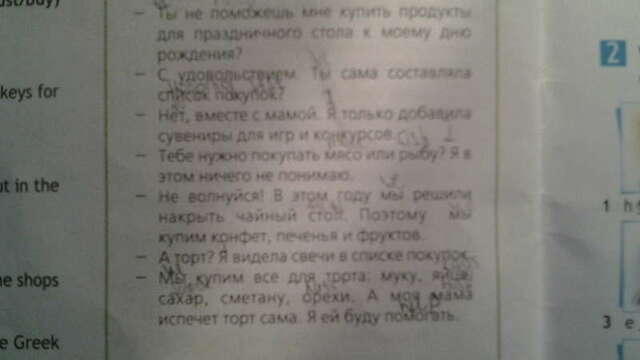 keys for
ut in the
he shops
e Greek
– Ты не поможешь мне купить продукты
для праздничного стола к моему дню
рождения?
– С удовольствием. Ты сама составляла
список покупок?
– Нет, вместе с мамой. Я только добавила
сувениры для игр и конкурсов.
– Тебе нужно покупать мясо или рыбу? Я в
этом ничего не понимаю.
– Не волнуйся! В этом году мы решили
накрыть чайный стол. Поэтому мы
купим конфет, печенья и фруктов.
– А торт? Я видела свечи в списке покупок.
– Мы купим все для торта: муку, яйца,
сахар, сметану, орехи. А моя мама
испечет торт сама. Я ей буду помогать.
2
1 h
3 e